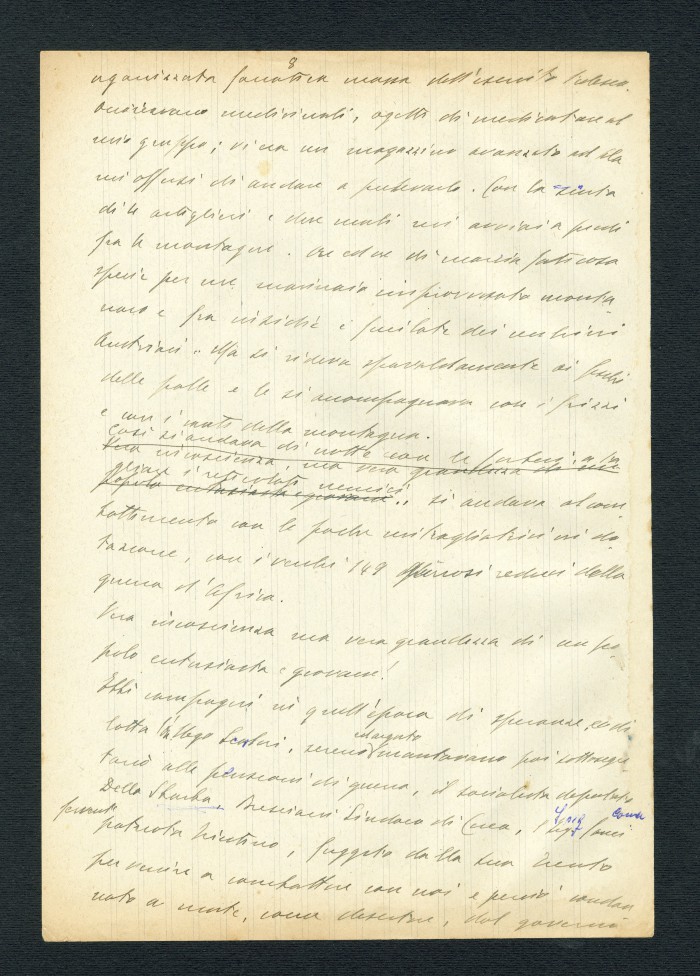 8
aganizzata fanatica massa dell'esercito tedesco.
Occorrevano medicinali, ogetti di medicatura al
mio gruppo; vi era un magazzino avanzato ad Ala
mi offersi di andare a prelevarlo. Con la scorta
di tre artiglieri e due muli mi avviai a piedi
fra le montagne. Ore ed ore di marcia faticosa
specie per un marinaio improvvisato monta
naro e fra insidie e fucilate dei cecchini
Austriaci. Ma si rideva spavaldamente ai fischi
delle palle e le si accompagnava con i frizzi
e con i canti della montagna.
Così si andava di notte con le a ta
Vera incoscienza, ma vera grandezza di un
gliare i reticolati nemici
popolo entusiasta e giovane.. si andava al com
battimento con le poche mitragliatrici in do
tazione, con i vecchi 149 gloriosi reduci della
guerra d'Africa.
Vera incoscienza ma vera grandezza di un po
polo entusiasta e giovane!
Ebbi compagni in quell'epoca di speranze, e di
lotta Ugo, sereno
mantovano poi sottosegre
tario alle pensioni di guerra, il socialista deputato
Della Sbarba, Bresciani Sindaco di, l'
patriota trentino, fuggito dalla sua Trento
per venire a combattere con noi e perciò condan
nato a morte, come disertore, dal governo